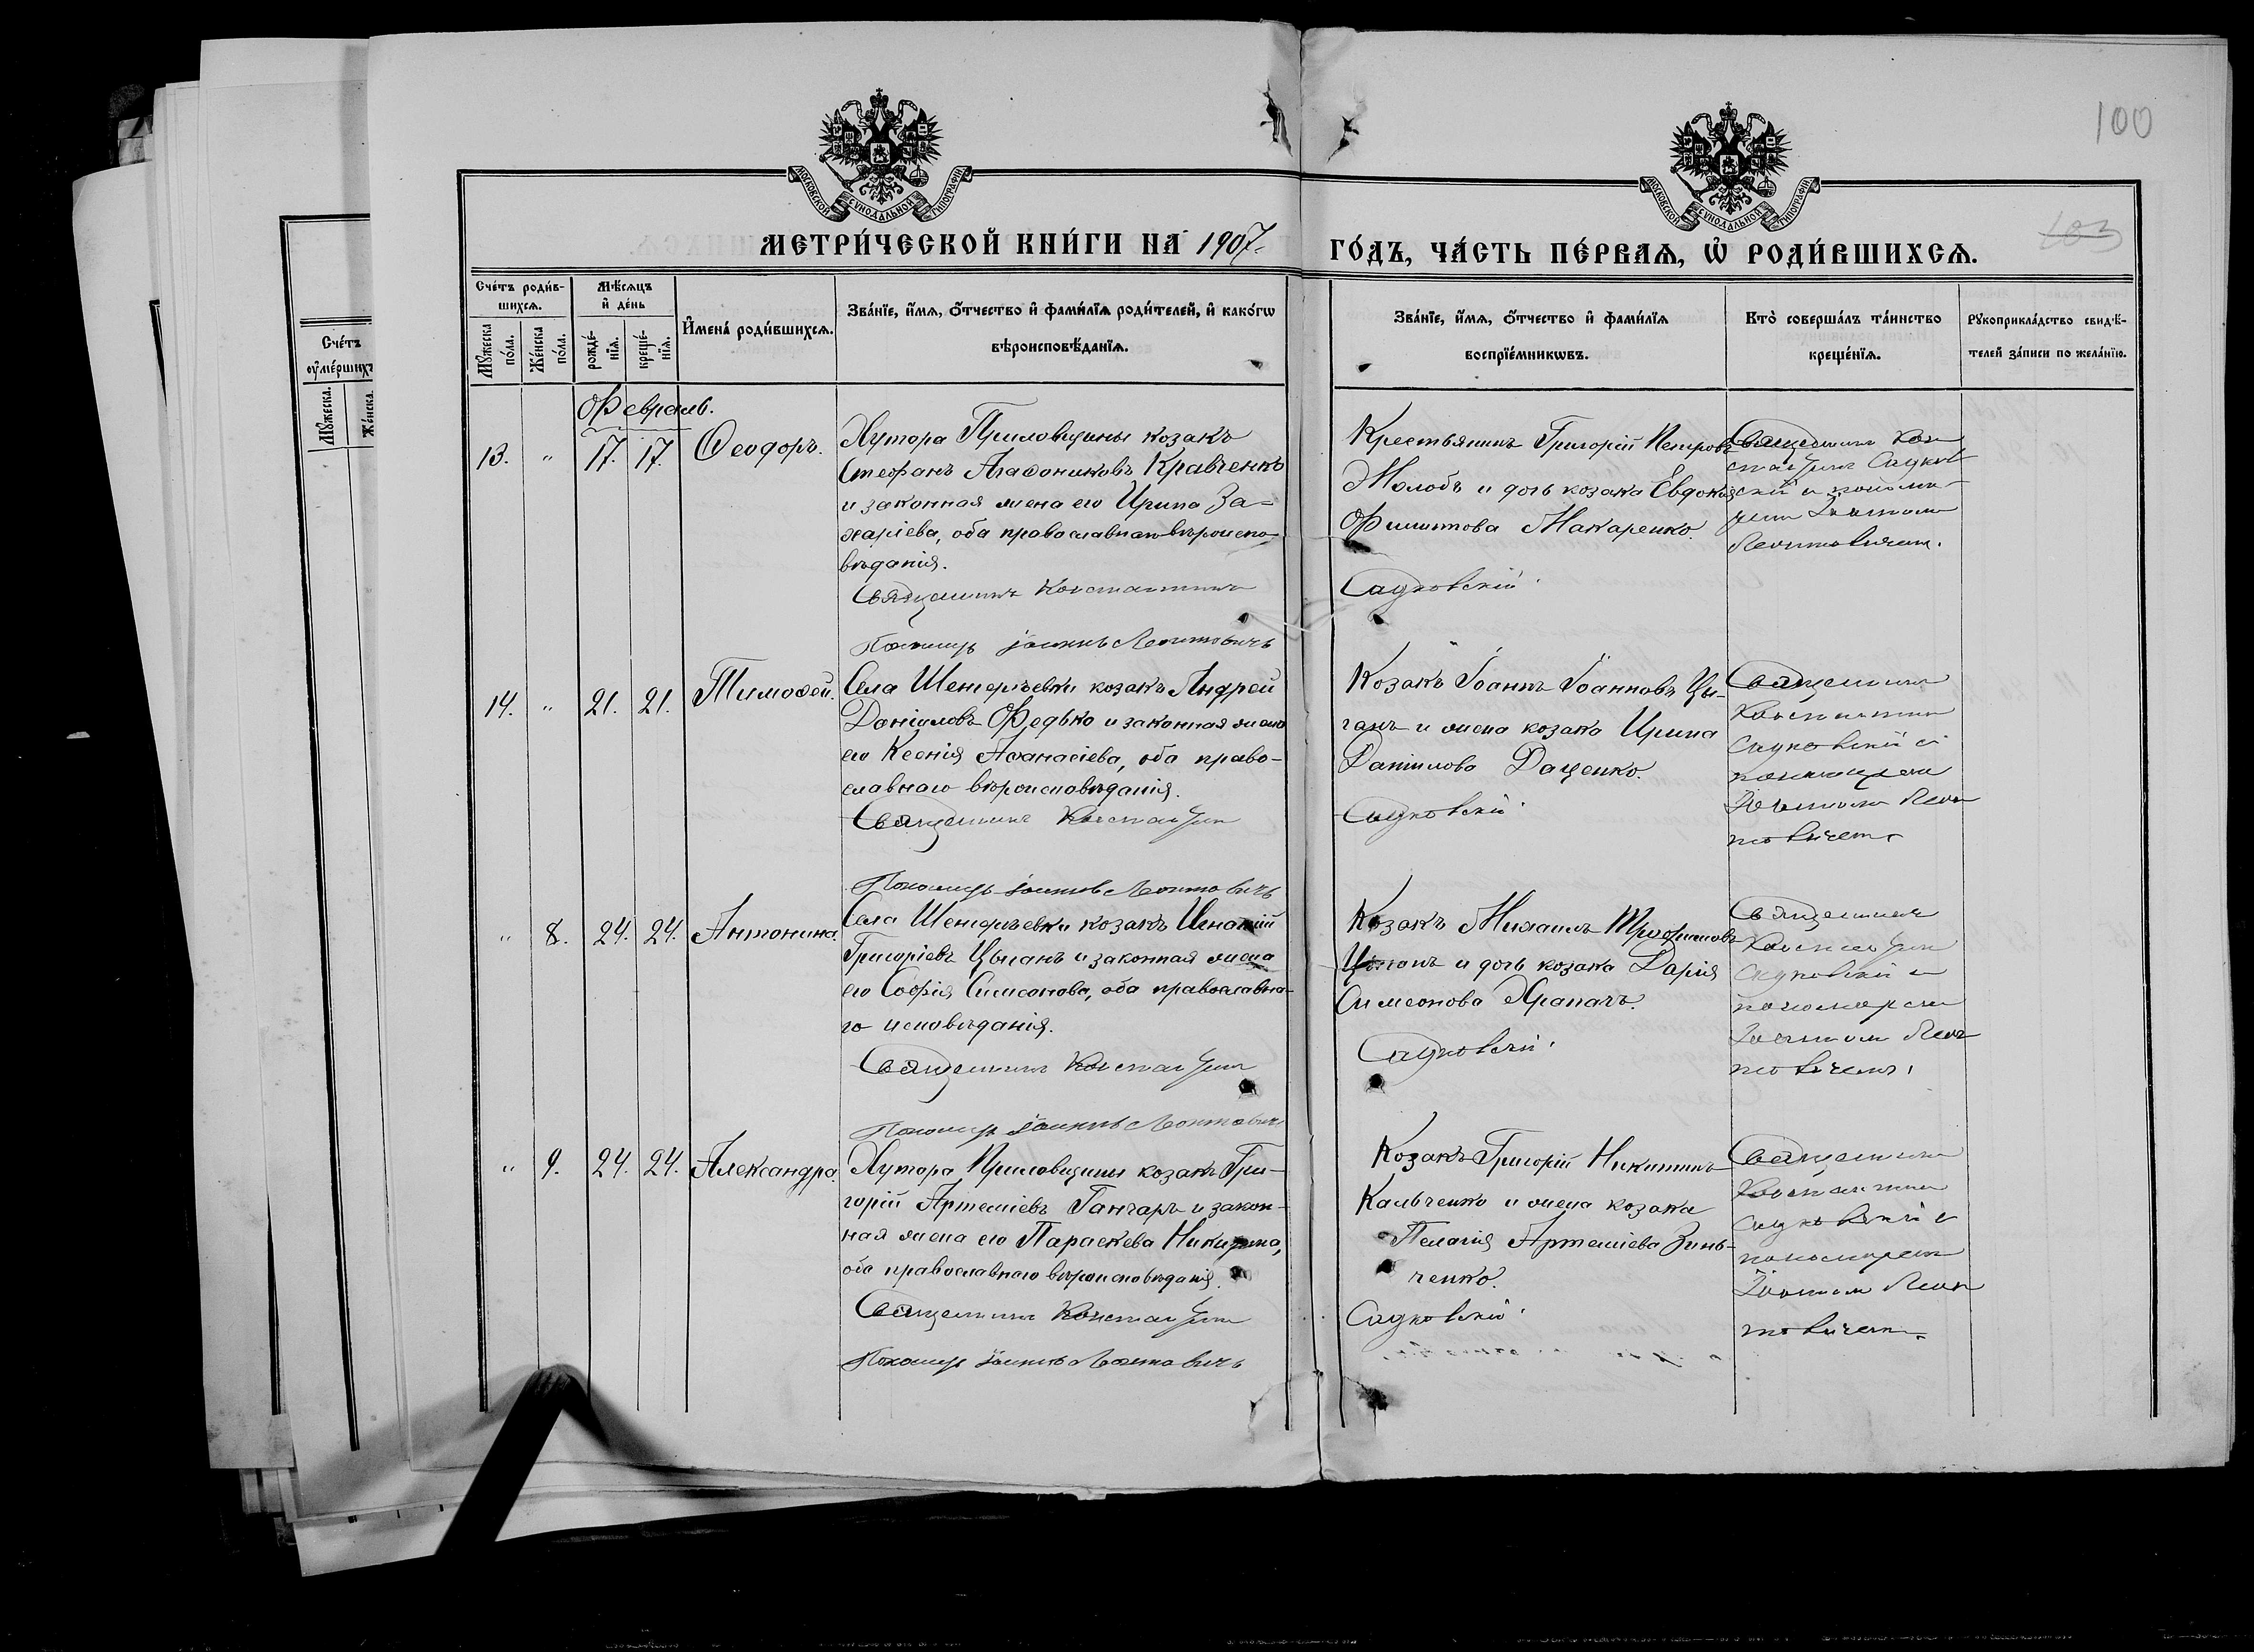 100
103
МОСКОВСКОЙ СѴНОДАЛЬНОЙ ТИПОГРАФІИ
МОСКОВСКОЙ СѴНОДАЛЬНОЙ ТИПОГРАФІИ
МЕТРИ́ЧЕСКОЙ КНИ́ГИ НА 1907. ГО́ДЪ, ЧА́СТЬ ПЕ́РВАѦ, Ѡ҆ РОДИ́ВШИХСѦ.
Сче́тъ роди́в-
шихсѧ.
Мꙋ́жеска по́ла.
Же́нска по́ла.
Мѣ́сѧцъ
и҆ де́нь
рожде́-
нїѧ.
креще́-
нїѧ.
И҆мена̀ роди́вшихсѧ.
Зва́нїе, и҆́мѧ, ѻ҆́тчество и҆ фами́лїѧ роди́телей, и҆ како́гѡ
вѣроисповѣ́данїѧ.
Зва́нїе, и҆́мѧ, ѻ҆́тчество и҆ фами́лїѧ
воспрїе́мникѡвъ.
Кто̀ соверша́лъ та́инство
креще́нїѧ.
Рꙋкоприкла́дство свидѣ́-
телей за́писи по жела́нїю.
Сче́тъ
ᲂу҆ме́ршихъ
Мꙋ́жеска.
Же́нска.
Февраль.
13. " 17. 17. Ѳеодоръ.
Хутора Приловщины козакъ
Стефанъ Агаѳониковъ Кравченко
и законная жена его Ирина За-
харіева, оба православнаго вѣроиспо-
вѣданія.
Священникъ Константинъ
Пономарь Іоаннъ Леонтовичъ
Крестьянинъ Григорій Петровъ
Молобъ и дочь козака Евдокія
Филиппова Макаренко.
Садковскій
Священникъ Кон
стантинъ Садков
скій и понома-
ремъ Іоанномъ
Леонтовичемъ.
14. " 21. 21. Тимоѳей.
Села козакъ Андрей
Даніиловъ Федько и законная жена
его Ксенія Аѳанасіева, оба право-
славнаго вѣроисповѣданія.
Священникъ Константинъ
Пономарь Іоаннъ Леонтовичъ
Козакъ Іоаннъ Іоанновъ Цы-
ганъ и жена козака Ирина
Даніилова Даценко.
Садковскій
Священникъ
Константинъ
Садковскій съ
пономаремъ
Іоанномъ Леон
товичемъ.
" 8. 24. 24. Антонина.
Села козакъ Игнатій
Григоріевъ Цыганъ и законная жена
его Софія Симеонова, оба православна-
го исповѣданія.
Священникъ Константинъ
Пономарь Іоаннъ Леонтовичъ
Козакъ Михаилъ Трофимовъ
Цыганъ и дочь козака Дарія
Симеонова Храпачъ.
Садковскій
Священникъ
Константинъ
Садковскій съ
пономаремъ
Іоанномъ Леон
товичемъ.
" 9. 24. 24. Александра.
Хутора Приловщины козакъ Гри-
горій Артеміевъ Ганчаръ и закон-
ная жена его Параскева Никитина,
оба православнаго вѣроисповѣданія.
Священникъ Константинъ
Пономарь Іоаннъ Леонтовичъ
Козакъ Григорій Никитинъ
Кальченко и жена козака
Пелагія Артеміева Зинь-
ченко.
Садковскій
Священникъ
Константинъ
Садковскій съ
пономаремъ
Іоанномъ Леон
товичемъ.